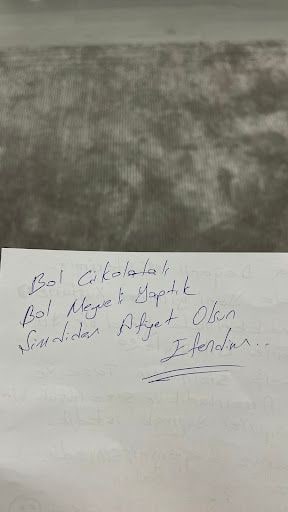 Bol Cikolatalı
Bol Meyveli Yaptık
Simdiden Afiyet Olsun
Efendim..